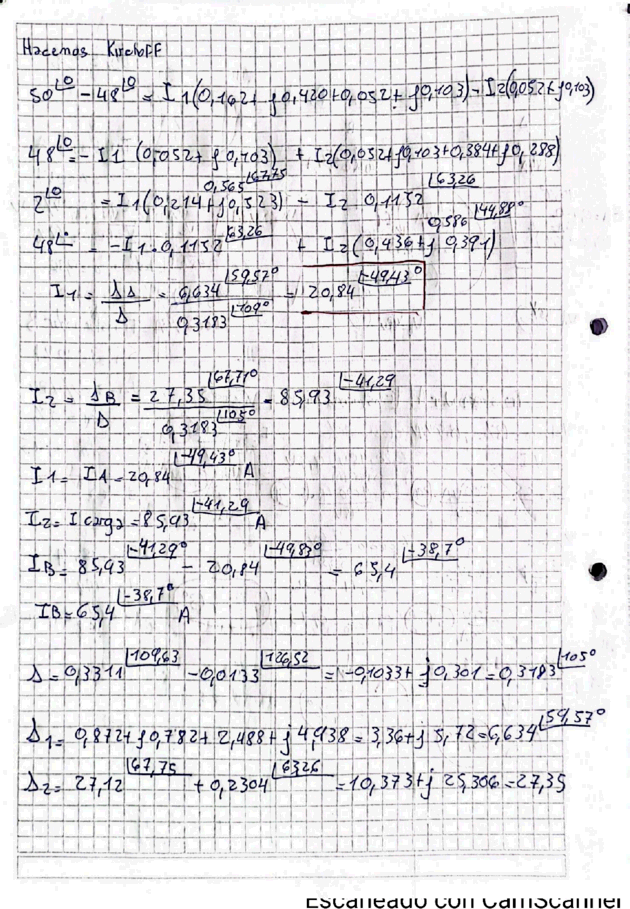 Hacemos Kirchoff
50∠0 - 48∠0 = I1(0,162+ j0,420+0,052+ j0,103) - I2(0,052+j0,103)
48∠0 = -I1 (0,052+ j0,103) + I2(0,052+j0,103+0,384+j0,288)
0,565∠67,75
2∠0 = I1(0,214+j0,523) - I2 0,1152∠63,26
0,586∠44,88°
48∠0 = -I1·0,1152∠63,26 + I2(0,436+j 0,391)
I1 = ΔA/Δ = 6,634∠59,57°/0,3183∠109° = 20,84∠-49,43°
I2 = ΔB/Δ = 27,35∠67,71°/0,3183∠105° = 85,93∠-41,29
I1 = IA = 20,84∠-49,43° A
I2 = I carga = 85,93∠-41,29 A
IB = 85,93∠-41,29° - 20,84∠-49,83° = 65,4∠-38,7°
IB = 65,4∠-38,7° A
Δ = 0,3311∠109,63 - 0,0133∠126,52 = -0,1033+ j0,301 = 0,3183∠105°
Δ1 = 0,872+j0,782+ 2,488+j 4,938 = 3,36+j 5,72 = 6,634∠59,57°
Δ2 = 27,12∠67,75 + 0,2304∠63,26 = 10,373+j 25,306 = 27,35
Escaneado con CamScanner